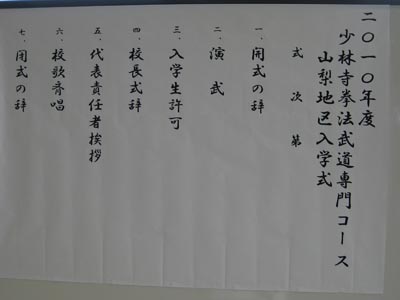 二〇一〇年度
少林寺拳法武道専門コース
山梨地区入学式
式次第
一、開式の辞
二、演武
三、入学生許可
四、校長式辞
五、代表責任者挨拶
六、校歌斉唱
七、閉式の辞